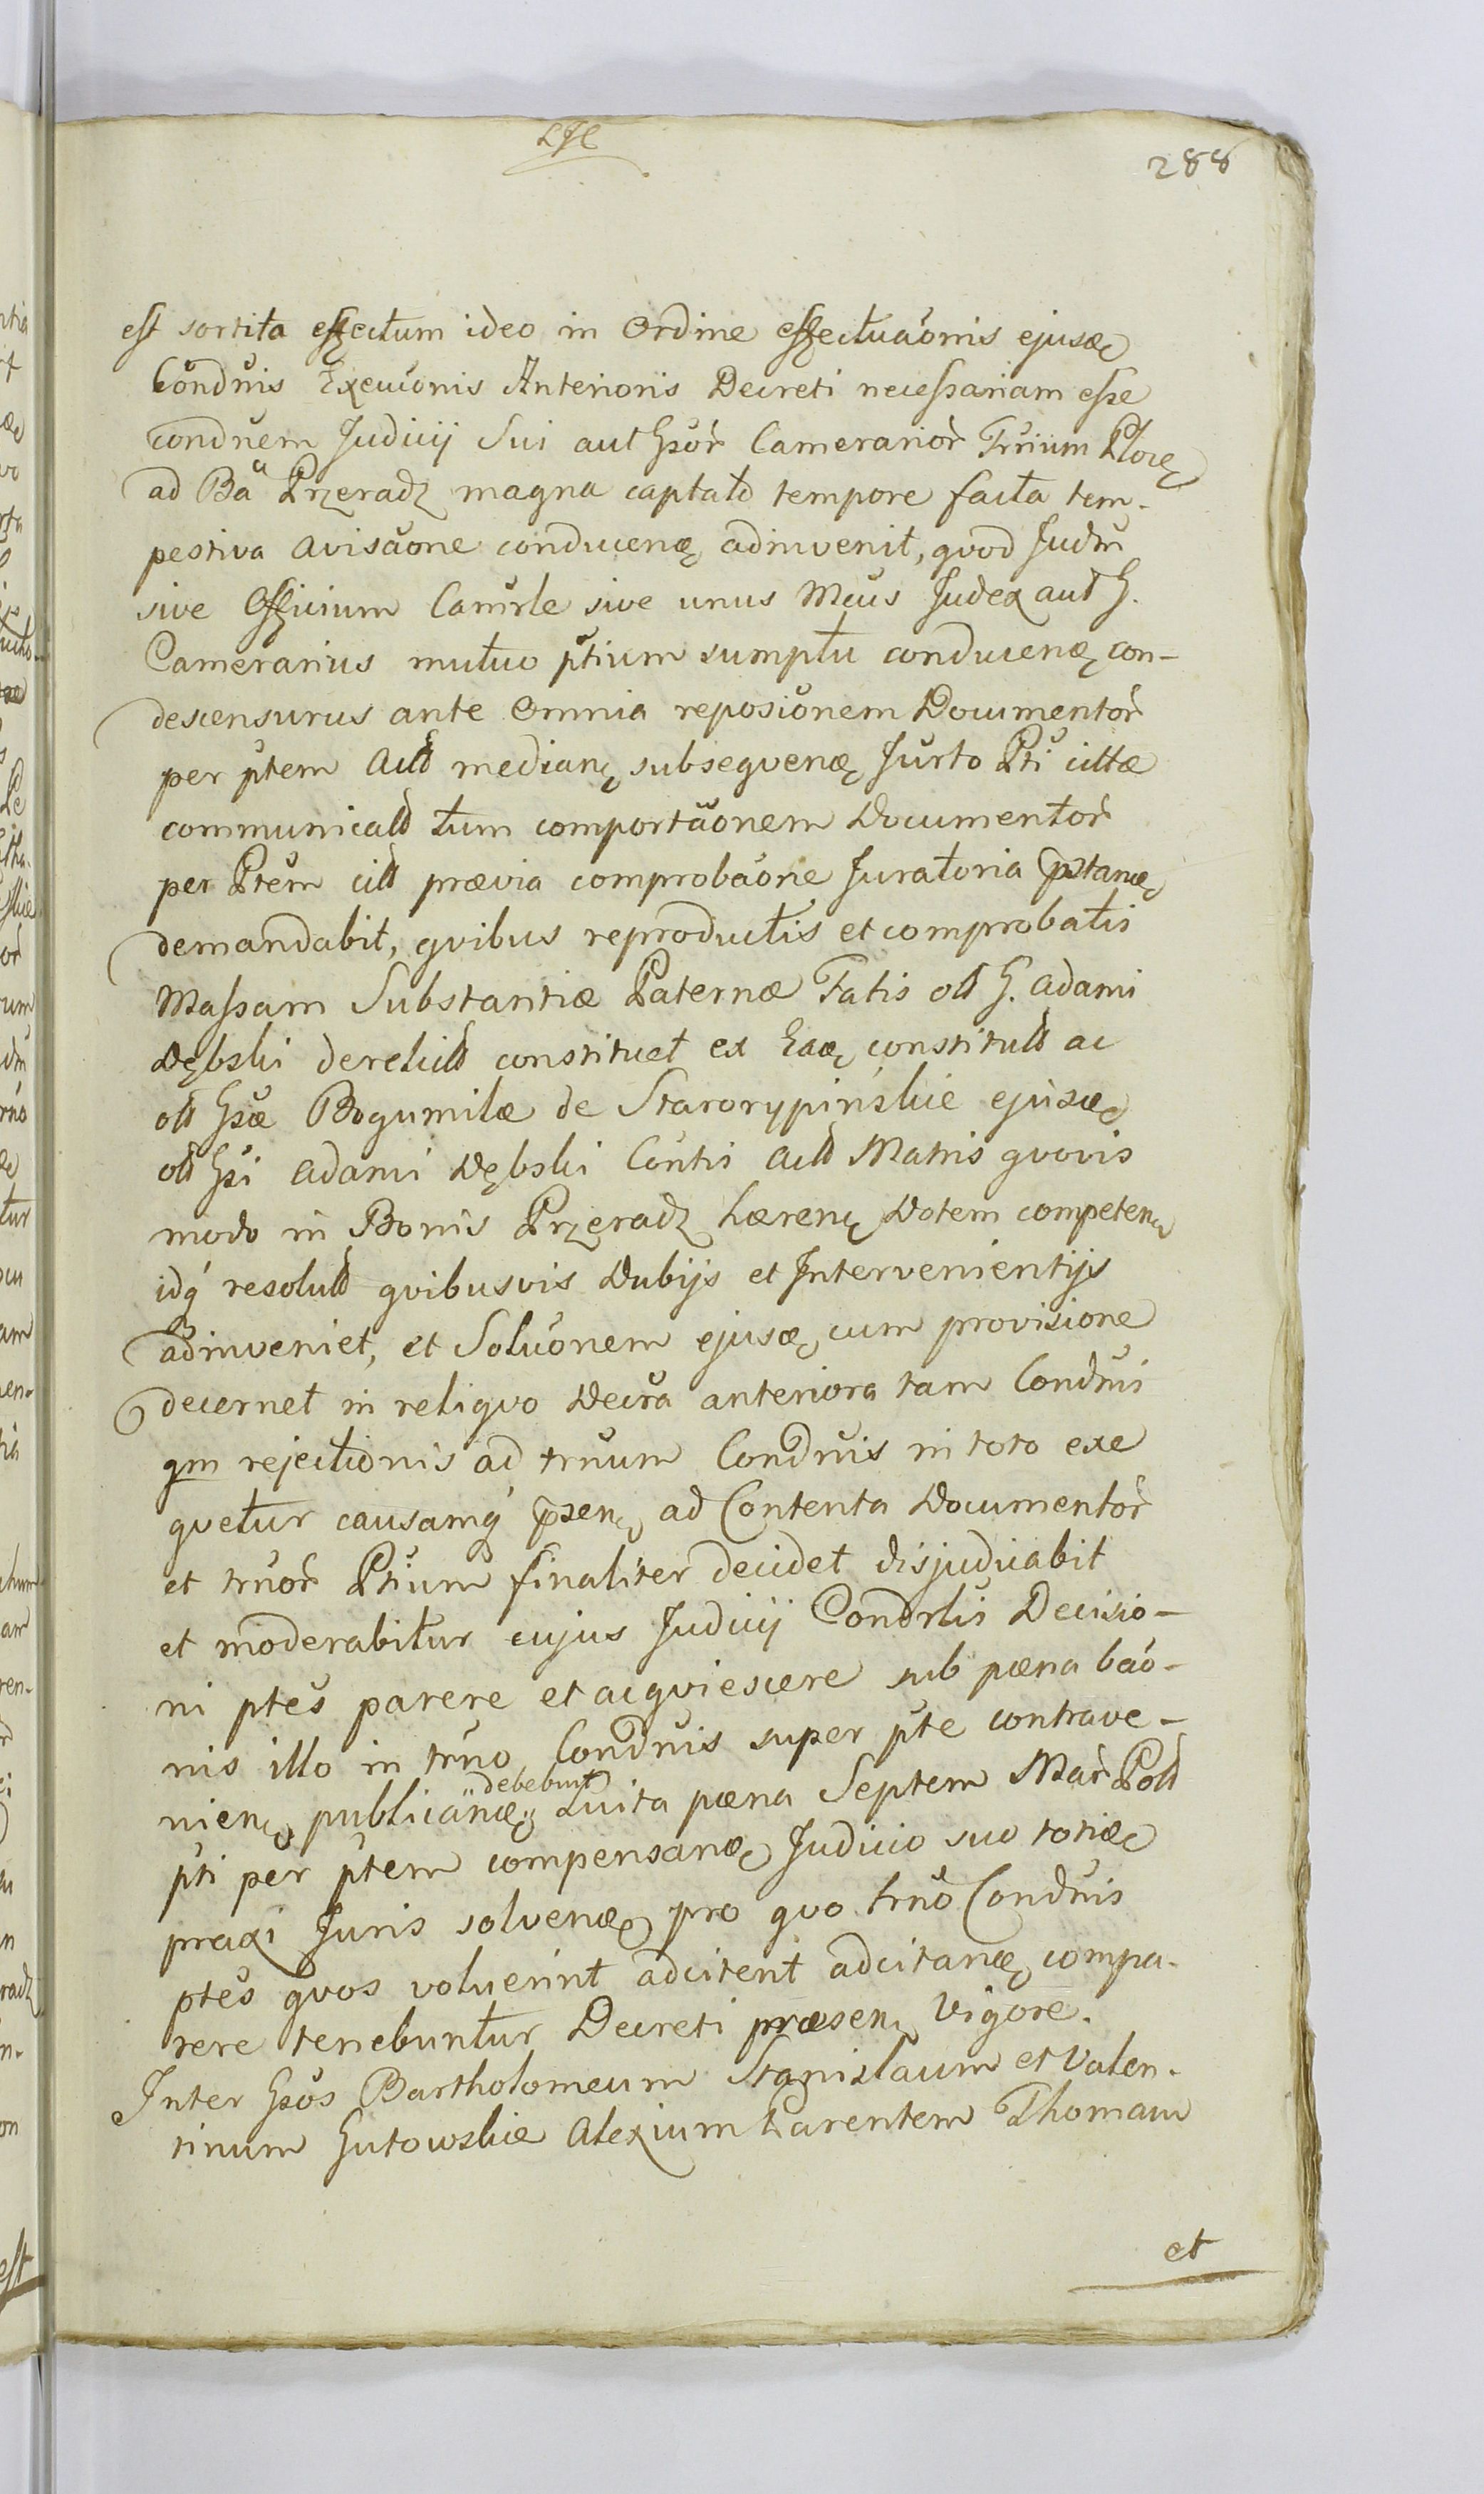 288
est sortita effectum ideo in Ordine effectuaõnis ejusdę
Condñis Execuõnis Anterioris Decreti necessariam esse
condñem Judicij Sui aut Gsõr Camerariõr Trrium Plocę
ad Bã Przeradz magna captatō tempore facta tem-
pestiva avisaõne conducenę adinvenit, qvod Judm̃
sive Officium Camrle sive unus Mcus Judex aut G.
Camerarius mutuo ptium sumptu conducenę con-
descensurus ante omnia reposiõnem Documentõr
per ptem Actō medianę subseqvenę Jurto Pti cittæ
communicatō tum comportaõnem Documentõr
per Ptem citō prævia comprobaõne Juratoria pstanę
demandabit, qvibus reproductis et comprobatis
Massam Substantiæ Paternæ Fatis olī G. Adami
Dębski derelictō constituet ex Eaę constitutō ac
olī Gsæ Bogumilæ de Starorypińskie ejusdę
olī Gsi Adami Dębski Contis Actō Matris qvovis
modo in Bonis Przeradz hærenę Dotem competenę
idq́ resolutō qvibusvis Dubijs et Intervenientijs
adinveniet, et Soluõnem ejusdę cum provisione
decernet in reliqvo Decra anteriora tam Condñis
qm rejectionis ad trnum Condñis in toto exe
qvetur causamq́ psenę ad Contenta Documentõr
et trnõr Ptium finaliter decidet disjudicabit
et moderabitur cujus Judicij Condrlis Decisio-
ni ptes parere et acqviescere sub pæna baõ-
nis illo in trno Condñis super pte contrave-
nienę publicanę debebunt Luita pæna Septem Mar̃ Polł
pti per ptem compensanę Judicio suo totię
praxi Juris solvenę pro qvo trno Condñis
ptes qvos voluerint adcitent adcitanę compa-
rere tenebuntur Decreti præsenę Vigore.
Inter Gsos Bartholomeum Stanislaum et Valen-
tinum Gutowskie Alexium Parentem Thomam
et